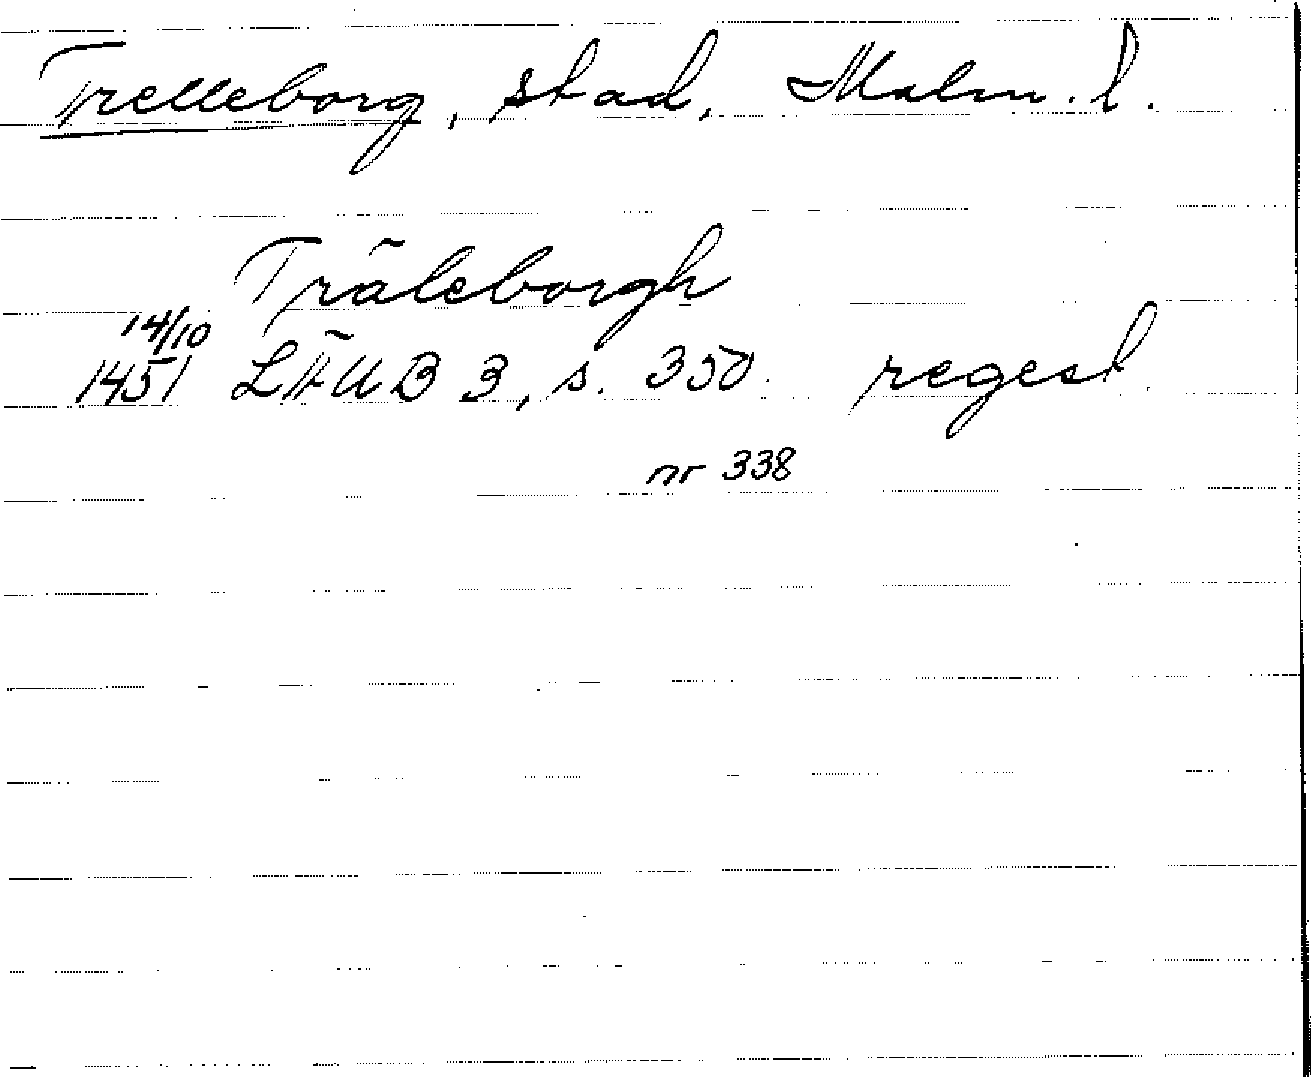 Trelleborg, stad, Malm. l.
Träleborgh
14/10
1451 LÄUB 3, s. 350. regest.
nr 338